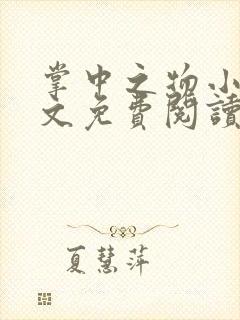 掌中之物小
文免費閱讀
夏慧萍